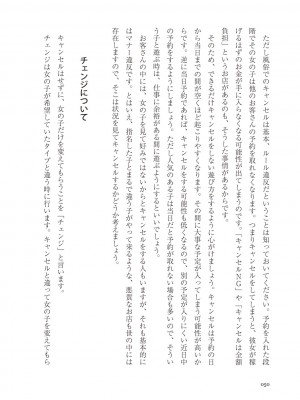 ただし風俗でのキャンセルは基本、ルール違反だということは知っておいてください。予約を入れた段
階でその女の子は他のお客さんの予約を取れなくなります。つまりキャンセルをしてしまうと、彼女が稼
げるはずのお金が手に入らなくなる可能性が出てしまうのです。「キャンセルNG」や「キャンセルは全額
負担」というお店があるのも、そういう事情があるからです。
そのため、できるだけキャンセルをしない遊び方をするように心がけましょう。キャンセルは予約の日
から当日までの間が空くほど起こりやすくなります。その間に大事な予定が入ってしまう可能性が高いか
らです。逆に当日予約であれば、キャンセルをする可能性も低くなるので、別の予定が入りにくい近日中
の予約をするようにしましょう。ただし人気のある子は当日だと予約が取れない場合も多いので、そうい
う子と遊ぶ時は、仕事に余裕がある間に遊ぶようにするといいでしょう。
お客さんの中には、女の子を見て好みではないからとキャンセルをする人もいますが、それも基本的に
はマナー違反です。とはいえ、指名した子とまるで違う子がやって来るような、悪質なお店も世の中には
存在しますので、そこは状況を見てキャンセルするかどうか考えましょう。
チェンジについて
キャンセルはせずに、女の子だけを変えてもらうことを「チェンジ」と言います。
チェンジは女の子が希望していたタイプと違う時に行います。キャンセルと違って女の子を変えてもら
050